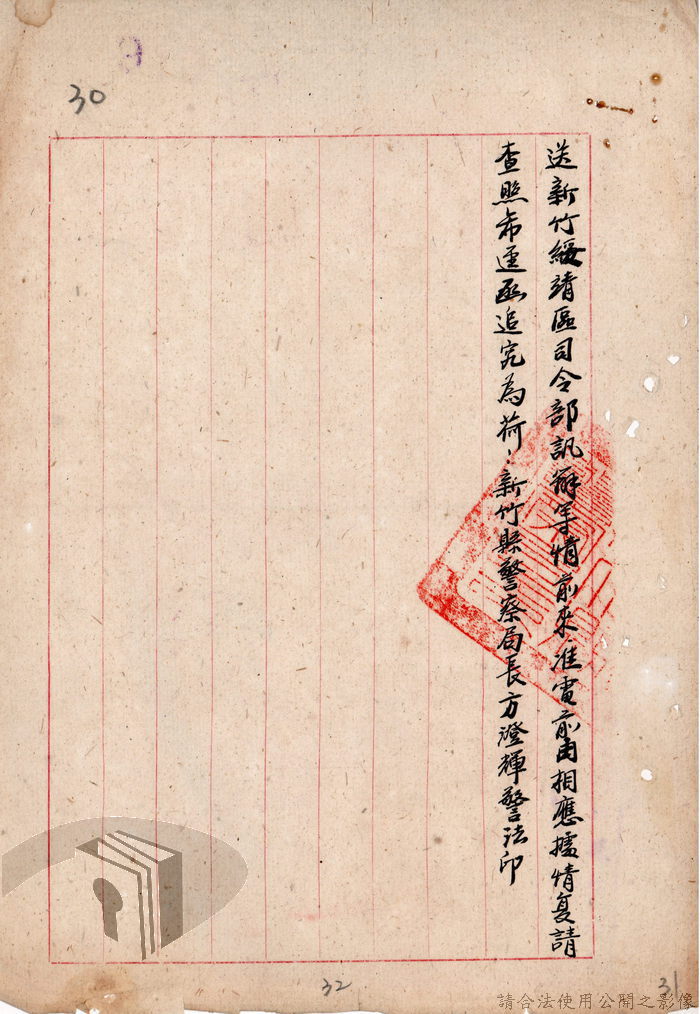 30
送新竹綏靖區司令部訊辦等情前來准電前由相應據情复請
查照希逕函追究為荷:新竹縣警察局長方澄輝警法印
32
31
請合法使用公開之影像